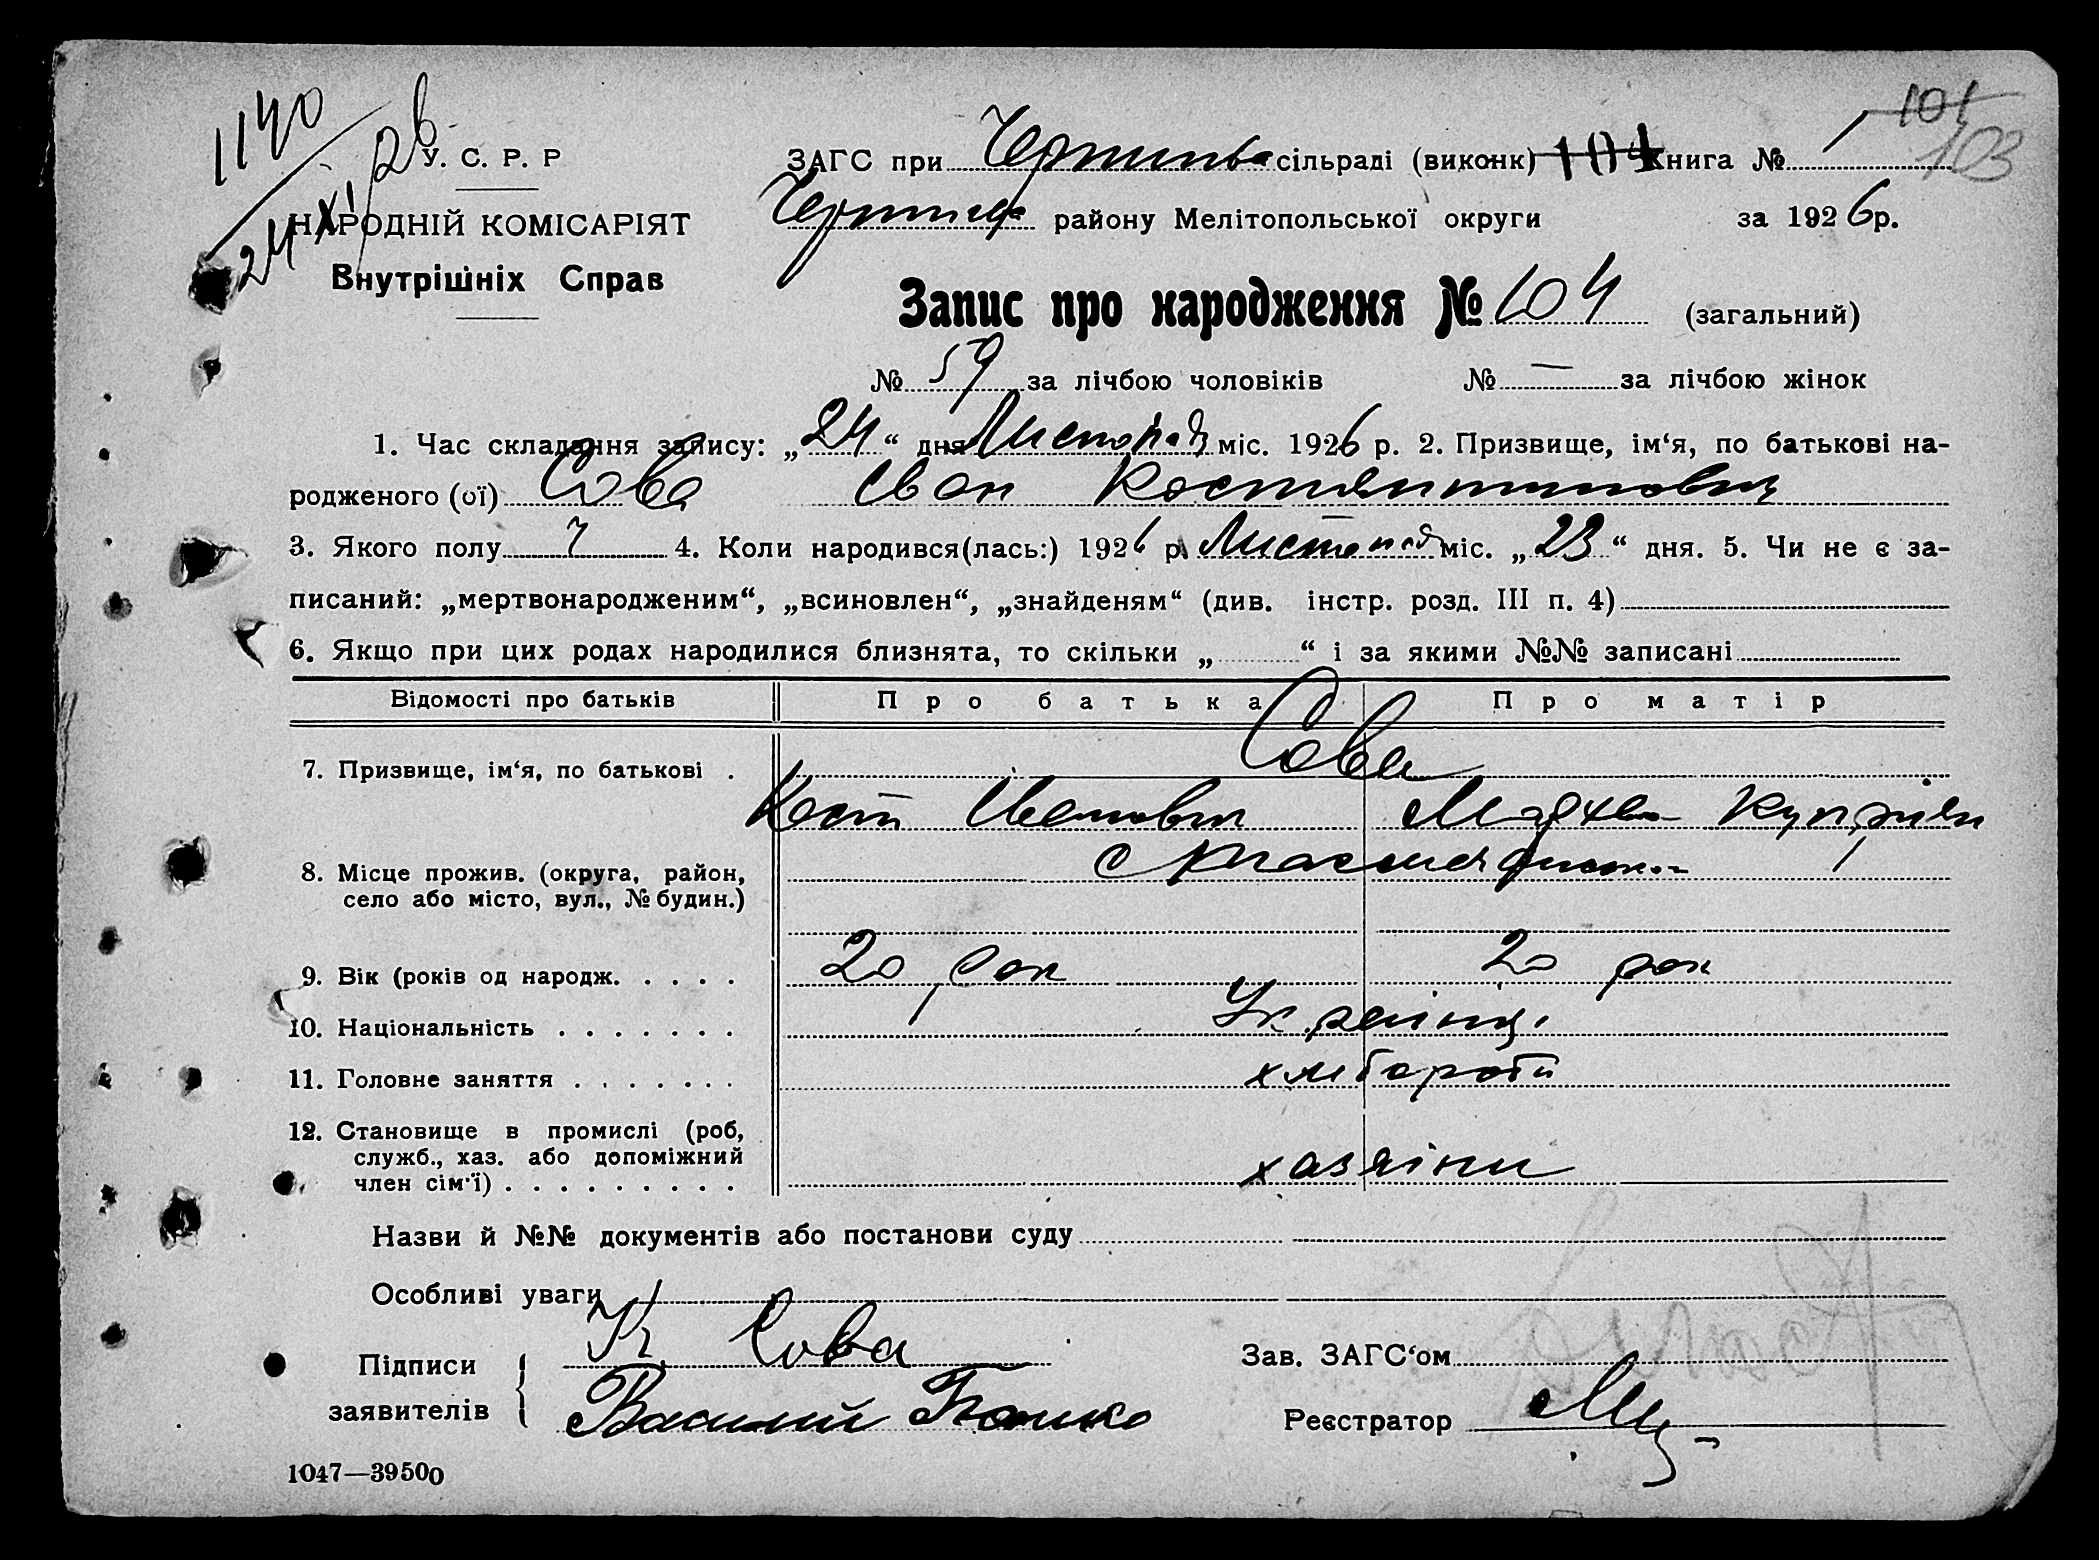 1140
24/XI 26
У. С. Р. Р
НАРОДНІЙ КОМІСАРІЯТ
Внутрішніх Справ
101
103
ЗАГС при сільраді (виконк) 104 книга № 1
району Мелітопольської округи за 1926р.
Запис про народження № 104 (загальний)
№ 59 за лічбою чоловіків № — за лічбою жінок
1. Час складання запису: „24“ дня Листопад міс. 1926 р. 2. Призвище, ім‘я, по батькові на-
родженого (ої) Сова Іван Костянтинович
3. Якого полу Ч 4. Коли народився(лась:) 1926 р. Листопад міс. „23“ дня. 5. Чи не є за-
писаний: „мертвонародженим“, „всиновлен“, „знайденям“ (див. інстр. розд. III п. 4)
6. Якщо при цих родах народилися близнята, то скільки „ “ і за якими №№ записані
Відомості про батьків Про батька Про матір
7. Призвище, ім‘я, по батькові . Сова
Кост Иванович Купріян
8. Місце прожив. (округа, район,
село або місто, вул., № будин.)
9. Вік (років од народж. . . . . 20 рок 20 рок
10. Національність . . . . . . . Українці
11. Головне заняття . . . . . . . хлібороби
12. Становище в промислі (роб,
служб., хаз. або допоміжний
член сім‘ї) . . . . . . . . . хазяїни
Назви й №№ документів або постанови суду
Особливі уваги
Підписи К. Сова
заявителів Василий
Зав. ЗАГС‘ом
Реєстратор
1047—39500